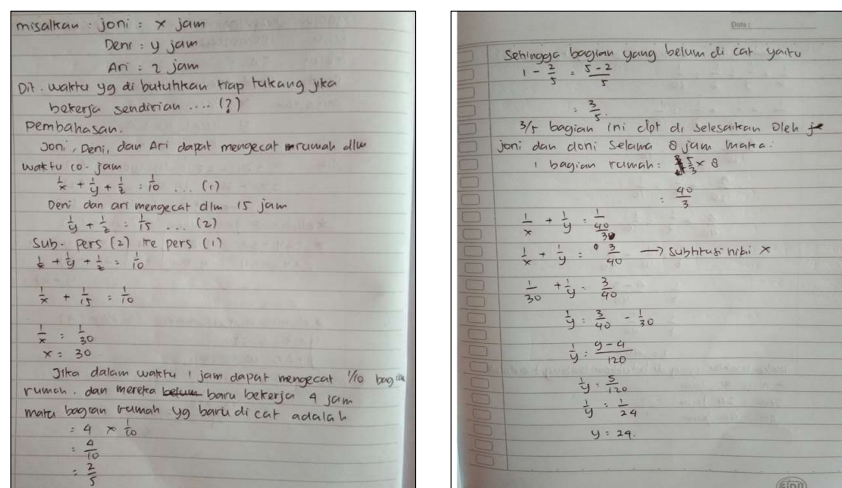 misalkan : joni = x jam
Deni : y jam
Ari = z jam
Dit. waktu yg di butuhkan tiap tukang jika
bekerja sendirian .... (?)
Pembahasan.
Joni, Deni, dan Ari dapat mengecat rumah dlm
waktu 10 jam
1/x + 1/y + 1/z = 1/10 ... (1)
Deni dan ari mengecat dlm 15 jam
1/y + 1/z = 1/15 ... (2)
Sub. pers (2) ke pers (1)
1/x + 1/y + 1/z = 1/10
1/x + 1/15 = 1/10
1/x = 1/30
x = 30
Jika dalam waktu 1 jam dapat mengecat 1/10 bagian
rumah. dan mereka baru bekerja 4 jam
maka bagian rumah yg baru di cat adalah
= 4 × 1/10
= 4/10
= 2/5
Sehingga bagian yang belum di cat yaitu
1 - 2/5 = 5-2/5
= 3/5
3/5 bagian ini dpt di selesaikan oleh
joni dan doni selama 8 jam maka:
1 bagian rumah = 5/3 × 8
= 40/3
1/x + 1/y = 1/40/3
1/x + 1/y = 3/40 → subtitusi nilai x
1/30 + 1/y = 3/40
1/y = 3/40 - 1/30
1/y = 9-4/120
1/y = 5/120
1/y = 1/24
y = 24.